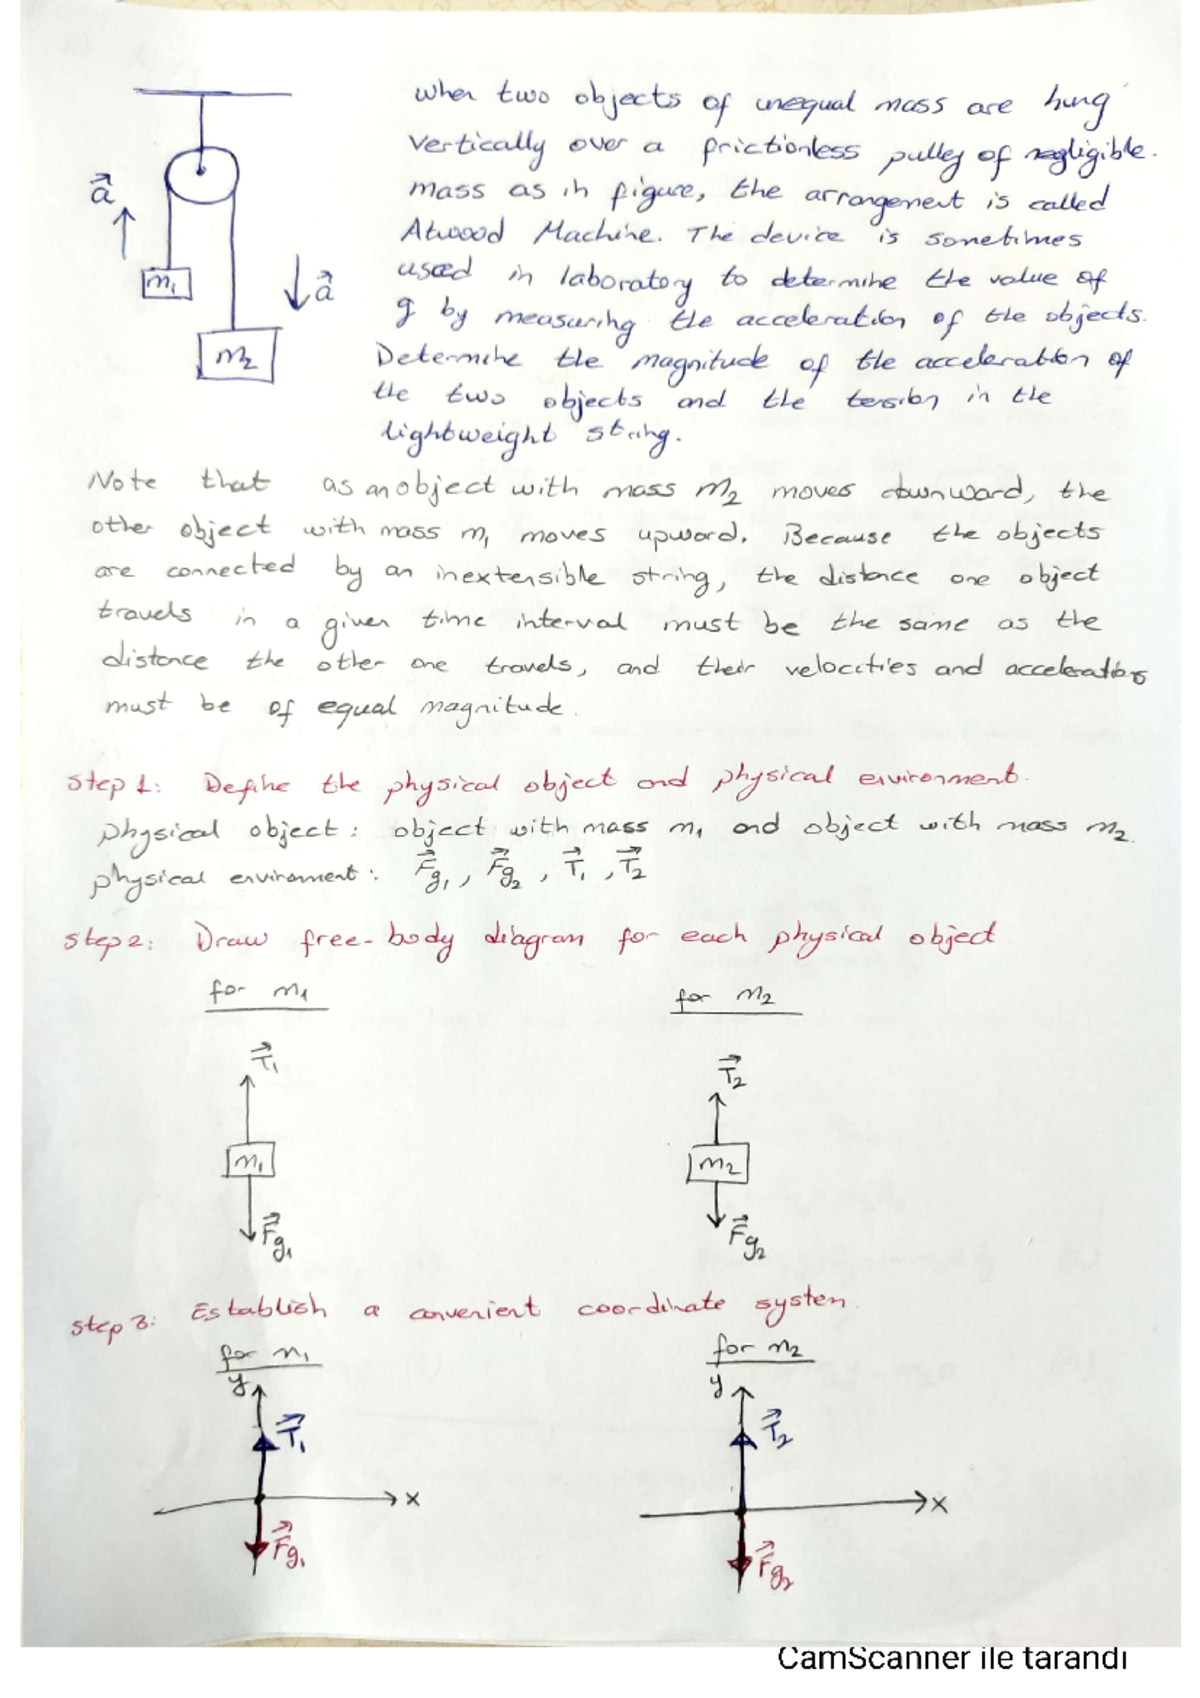 When two objects of unequal mass are hung
vertically over a frictionless pulley of negligible
mass as in figure, the arrangement is called
Atwood Machine. The device is sometimes
used in laboratory to determine the value of
g by measuring the acceleration of the objects.
Determine the magnitude of the acceleration of
the two objects and the tension in the
lightweight string.
a⃗
m₁
a⃗
m₂
Note that as an object with mass m₂ moves downward, the
other object with mass m₁ moves upward. Because the objects
are connected by an inextensible string, the distance one object
travels in a given time interval must be the same as the
distance the other one travels, and their velocities and accelerations
must be of equal magnitude.
Step 1: Define the physical object and physical environment.
physical object: object with mass m₁ and object with mass m₂.
physical environment: F⃗g₁, F⃗g₂, T⃗₁, T⃗₂
Step 2: Draw free-body diagram for each physical object
for m₁ for m₂
T⃗₁ T⃗₂
m₁ m₂
F⃗g₁ F⃗g₂
Step 3: Establish a convenient coordinate system.
for m₁ for m₂
y y
T⃗₁ T⃗₂
x x
F⃗g₁ F⃗g₂
CamScanner ile tarandı